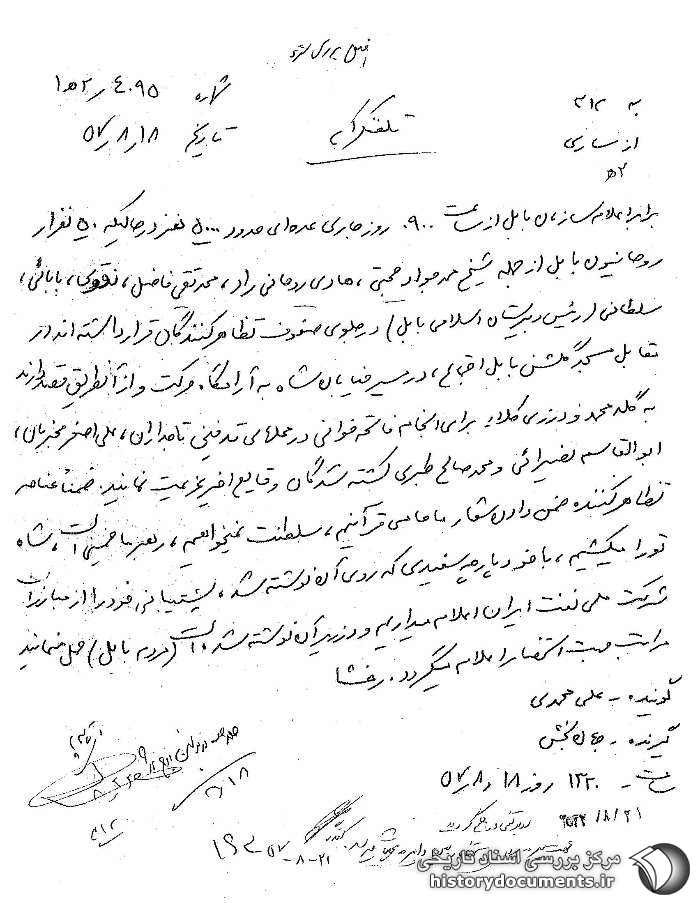 به ۳۱۲
شماره ۲ه۱/۴۰۹۵
از ساری
تلفنگرام
تاریخ ۵۷/۸/۱۸
۲ه
برابر اعلام سازمان بابل از ساعت ۰۹۰۰ روز جاری عده‌ای حدود ۵۰۰۰ نفر در حالیکه ۵۰ نفر از
روحانیون بابل از جمله شیخ محمد جواد حجتی، هادی روحانی راد، محمد تقی فاضل، نقوی، بابائی،
سلطانی (رئیس دبیرستان اسلامی بابل) در جلوی صفوف تظاهرکنندگان قرار داشته‌اند از
مقابل مسجد گلشن بابل اجتماع، در مسیر خیابان شاه به آرامگاه حرکت و از آنطریق قصد دارند
به گله محله و درزی کلا برای انجام فاتحه خوانی در محلهای تدفین تاجداران، علی اصغر مخبریان،
ابوالقاسم نصیرائی و محمد صالح طبری کشته شدگان وقایع اخیر عزیمت نمایند. ضمناً عناصر
تظاهرکننده ضمن دادن شعار ما حامی قرآنیم، سلطنت نمیخواهیم، رهبر ما خمینی است، شاه
تو را میکشیم، با خود پارچه سفیدی که روی آن نوشته شد، پشتیبانی خود را از مبارزات
شرکت ملی نفت ایران اعلام میداریم و در زیر آن نوشته شده است (مردم بابل) حمل مینمایند
مراتب جهت استحضار اعلام میگردد. رخشا
گوینده - علی محمدی
گیرنده - جهان بخش
ساعت - ۱۳۳۰ روز ۵۷/۸/۱۸
۸/۱۸
۳۱۲
۸/۲۱
۵۷-۸-۲۱
مرکز بررسی اسناد تاریخی
historydocuments.ir